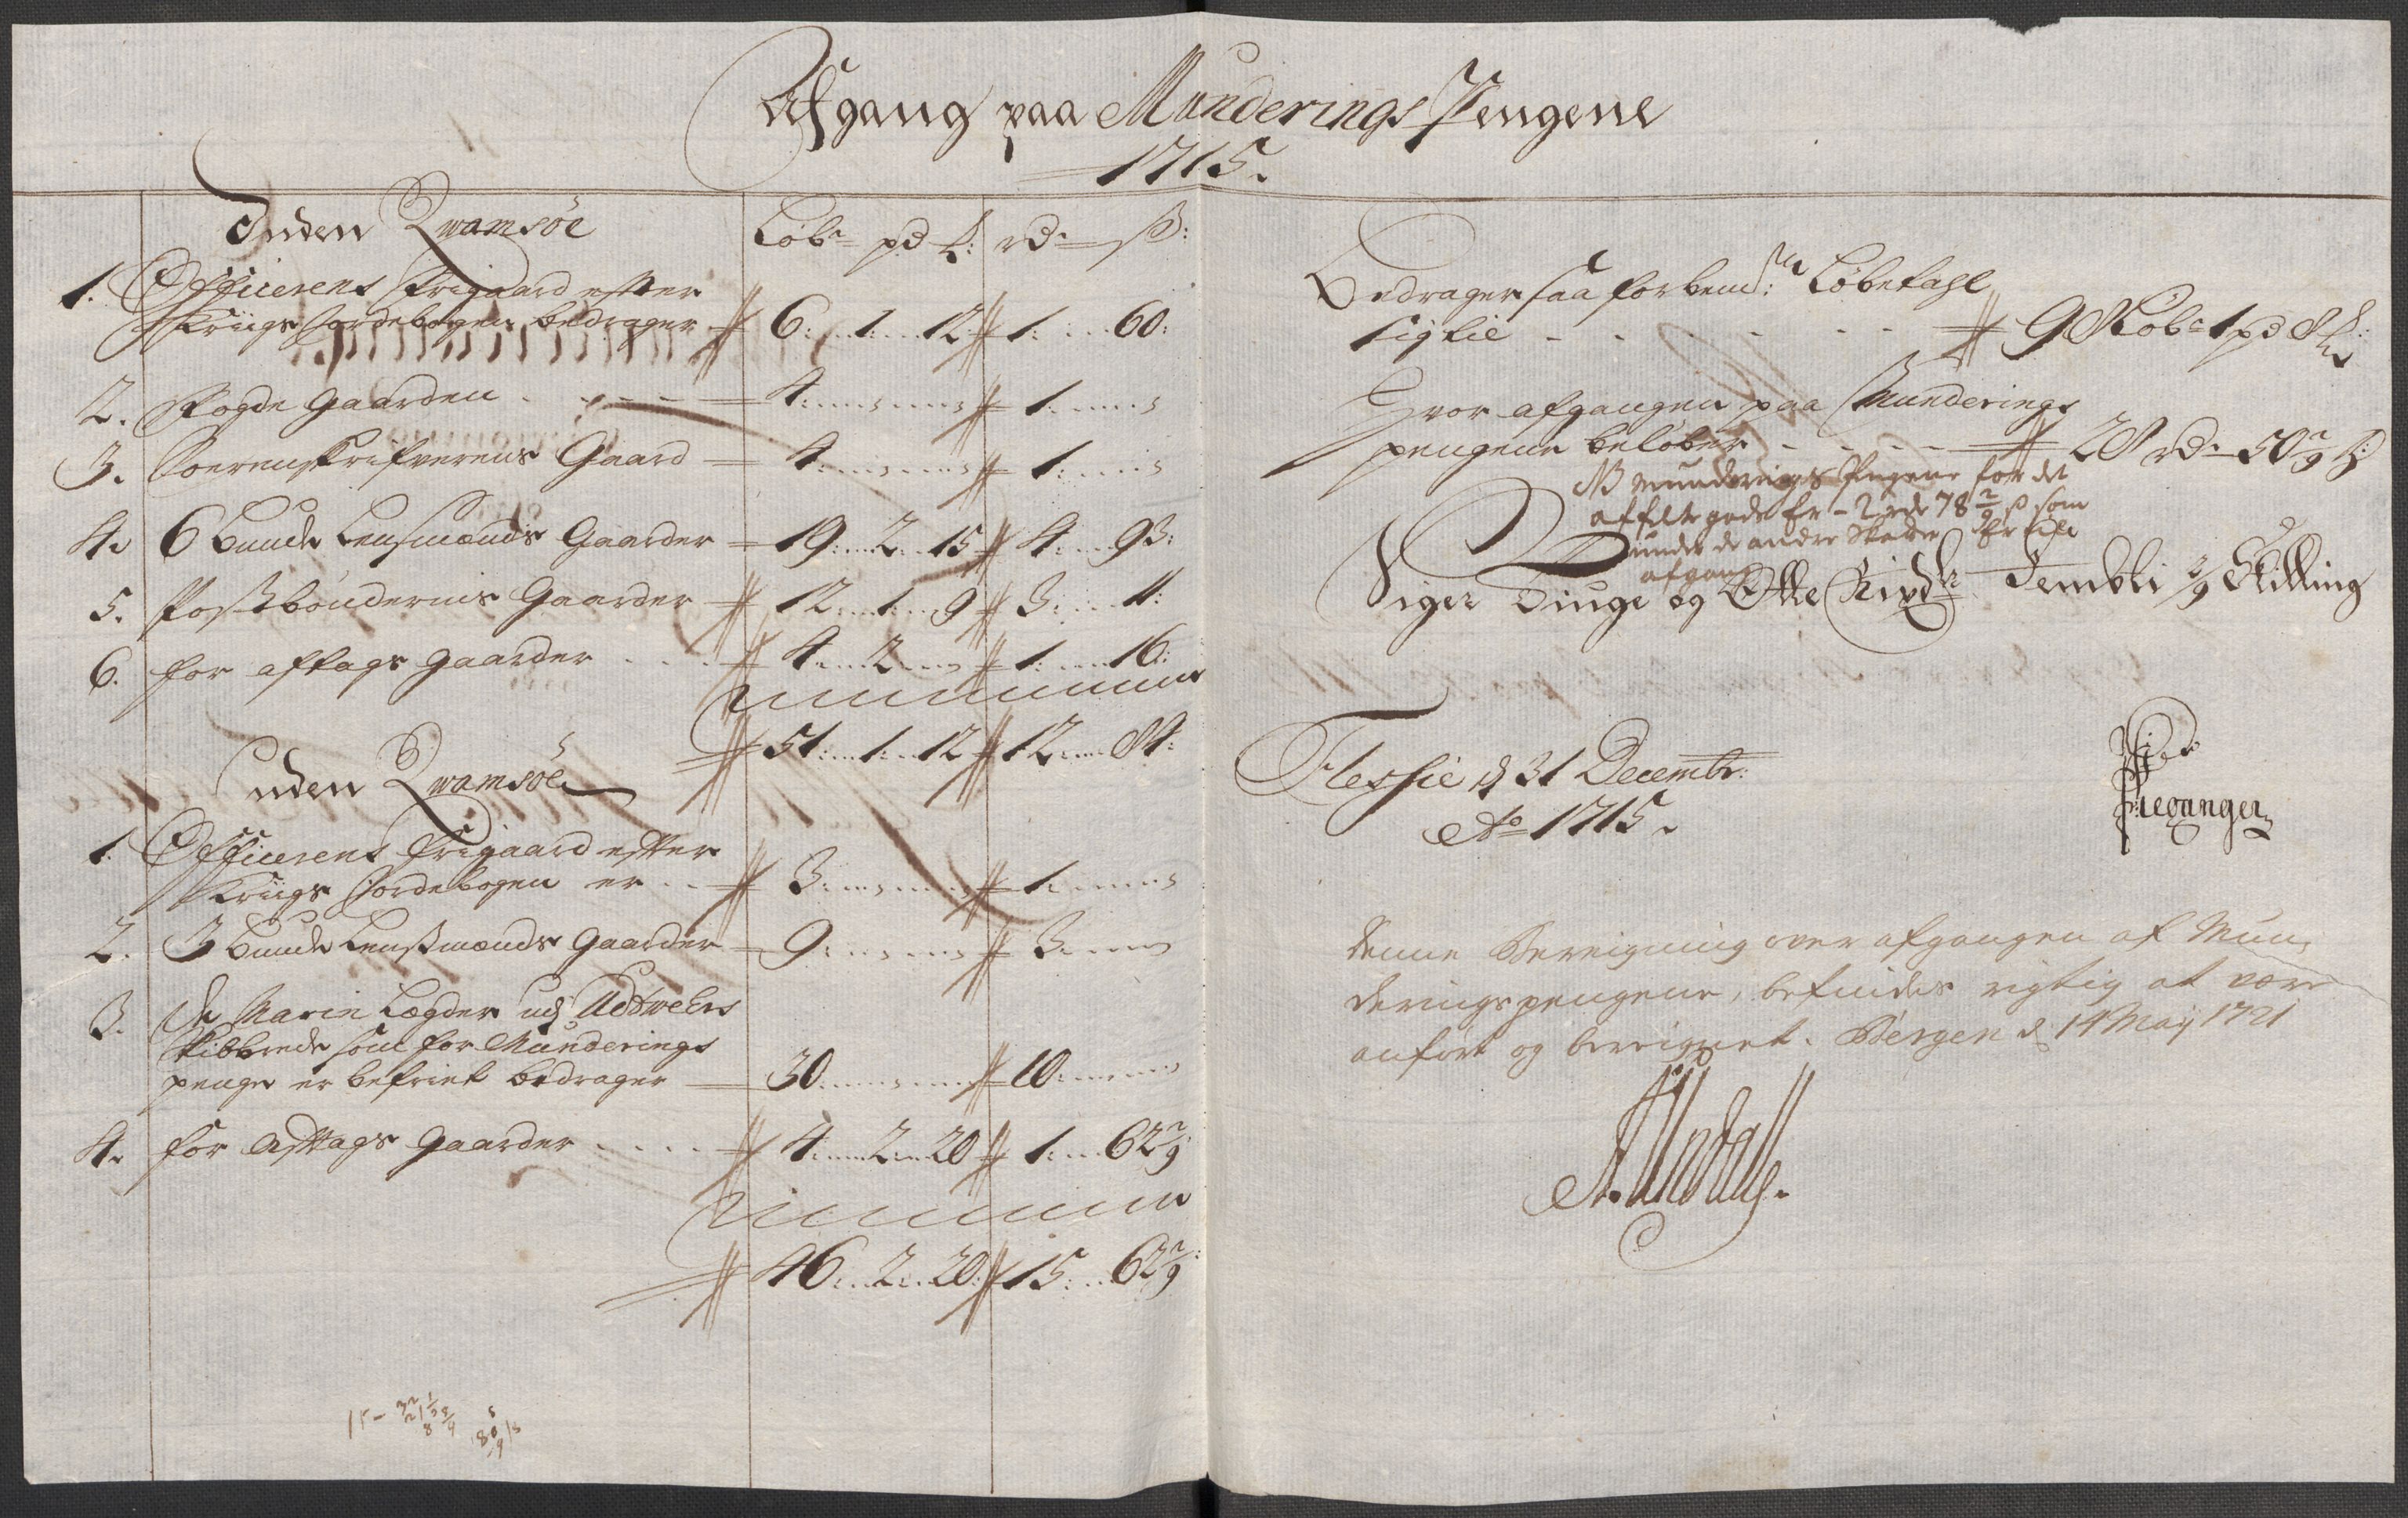 Afgang paa Munderings Pengene
1715.
Inden Qwamsöe
Löb. pd ℔: rd. ß:
1. Officerens frigaard efter
Kriigs Jordebogen bedrager 6: 1: 12 1: 60:
2. Fogde Gaarden 4: 1:
3. Sorenskrifverens Gaard 4: 1:
4. 6 bunde Lensmænds Gaarder 19: 2: 15 4: 93:
5. Postbøndernis Gaarder 12: 1: 9 3: 11:
6. for aftags gaarder 4: 2: 1: 16:
51: 1: 12 12: 84:
uden Qwamsöe
1. Officerens frigaard efter
Kriigs Jordebogen er 3: 1:
2. 3 bunde Lensmænds Gaarder 9: 3:
3. De Marin Lægder udj Udtwehrs
Skibbrede som for Munderings
penge er befriet bedrager 30: 10:
4. for Aftags Gaarder 4: 2: 20 1: 62 2/9
46: 2: 20: 15: 62 2/9:
Bedrager saa forbem:te Löbetahl
sigtie 98 Löb. 1 pd 8 ℔:
Hvor afgangen paa Munderings
pengene belöber 28 rd. 50 2/9 ß:
NB Munderings Pengene for det
affelte gods Er - 2 rd 78 2/9 ß som
under de andre Skatter Er til
afgang
Siger Tiuge og Otte Rixdr. Femti 2/9 Skilling
Flessie d 31 Decembr:
Ao 1715.
Denne Beregning over afgangen af Mun
deringspengene, befindes rigtig at være
anført og beregnet. Bergen d 14 Maij 1721